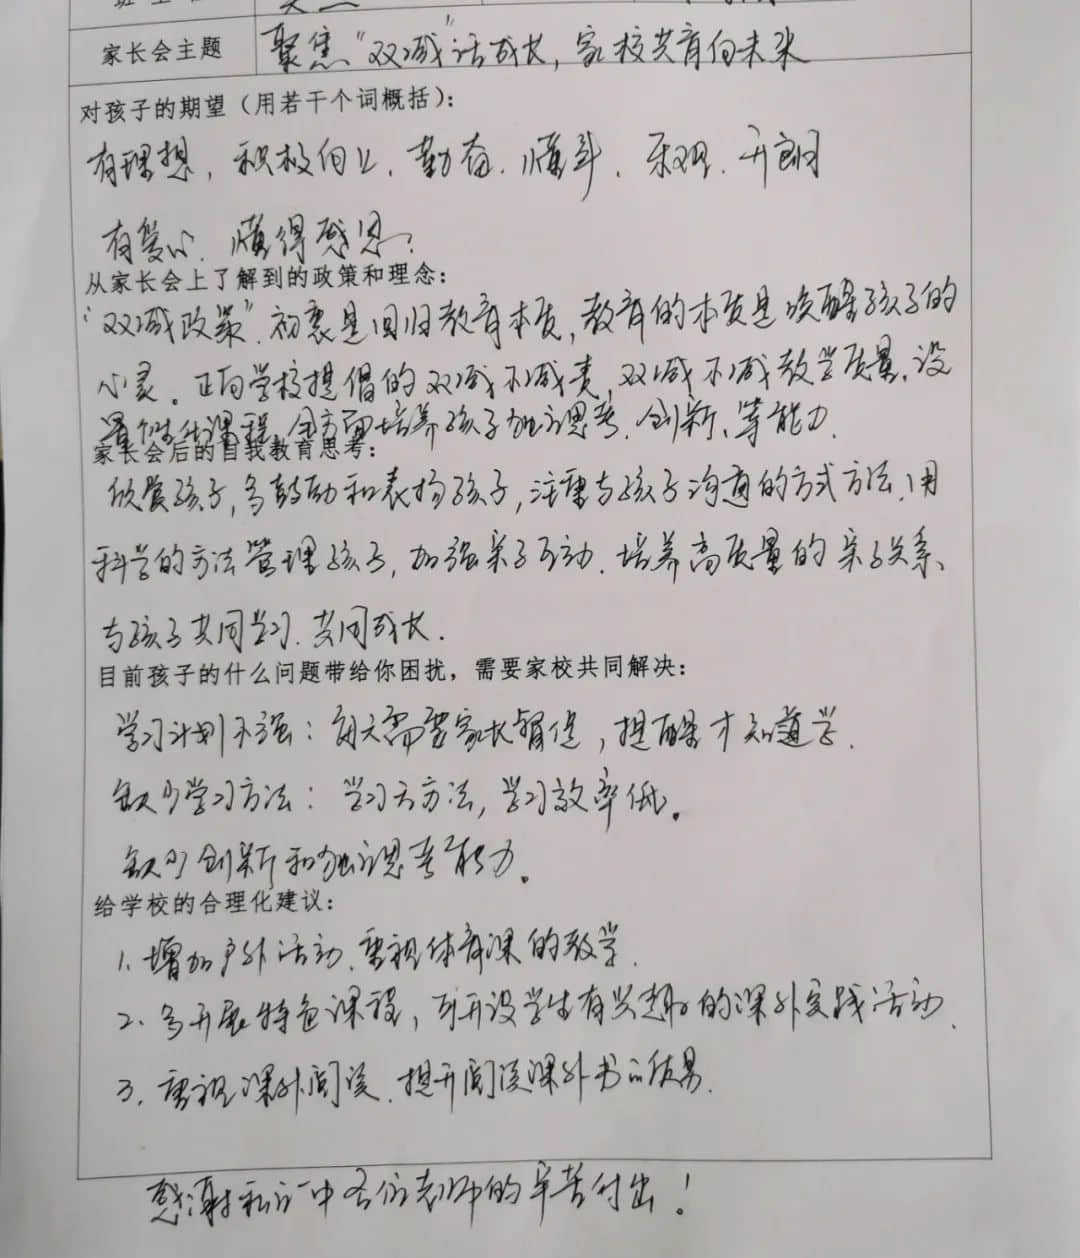 家长会主题 聚焦“双减”话成长，家校共育向未来
对孩子的期望（用若干个词概括）：
有理想，积极向上、勤奋、懂事、乐观、开朗
有爱心、懂得感恩。
从家长会上了解到的政策和理念：
“双减政策”初衷是回归教育本质，教育的本质是唤醒孩子的
心灵。正向学校提倡的双减不减责，双减不减教学质量，设
置个性化课程，全方面培养孩子独立思考、创新、等能力。
家长会后的自我教育思考：
欣赏孩子，多鼓励和表扬孩子，注重与孩子沟通的方式方法，用
科学的方法管理孩子，加强亲子互动、培养高质量的亲子关系、
与孩子共同学习、共同成长。
目前孩子的什么问题带给你困扰，需要家校共同解决：
学习计划不强：每天需要家长督促，提醒才知道学。
缺少学习方法：学习无方法，学习效率低。
缺少创新和独立思考能力。
给学校的合理化建议：
1、增加户外活动、重视体育课的教学。
2、多开展特色课程，开设学生有兴趣的课外实践活动。
3、重视课外阅读、提升阅读课外书的质量。
感谢 一中各位老师的辛苦付出！